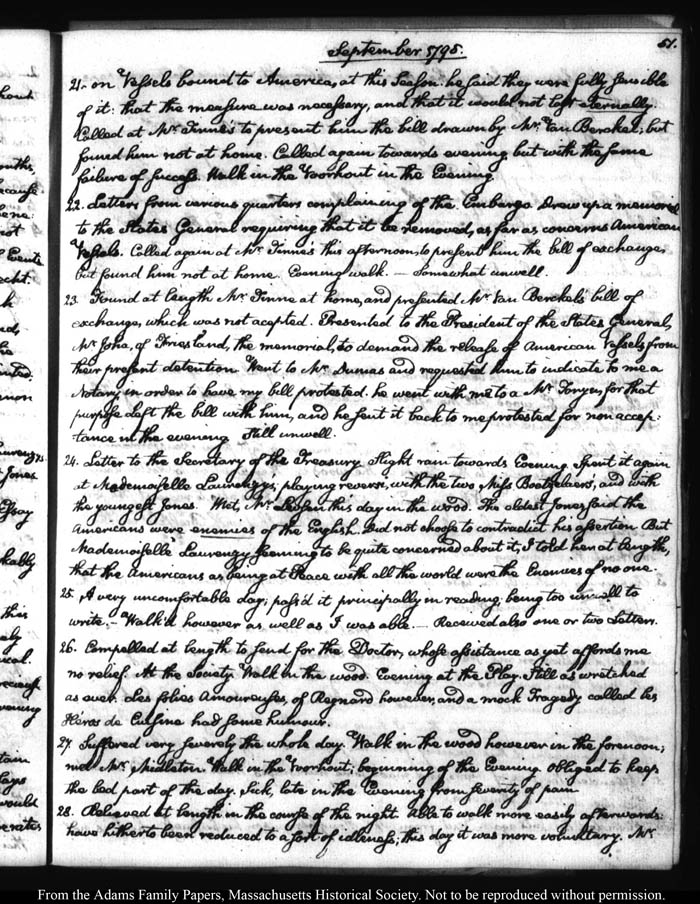 September 1795.
51.
21. on Vessels bound to America, at this Season. he said they were fully sensible
of it: that the measure was necessary, and that it would not last eternally.
Called at Mr. Tinne's to present him the bill drawn by Mr. Van Berckel; but
found him not at home. Called again towards evening but with the same
failure of success. Walk in the Voorhout in the Evening.
22. Letters from various quarters complaining of the Embargo Drew up a memorial
to the States General requiring that it be removed, as far as concerns American
Vessels. Called again at Mr. Tinne's this afternoon, to present him the bill of exchange,
but found him not at home. Evening walk. — Somewhat unwell.
23. Found at length Mr. Tinne at home, and presented Mr. Van Berckel's bill of
exchange, which was not accepted. Presented to the President of the States General,
Mr. Joha, of Friesland, the memorial, to demand the release of American Vessels from
their present detention. Went to Mr. Dumas and requested him to indicate to me a
Notary, in order to have my bill protested. he went with me to a Mr. for that
purpose. Left the bill with him, and he sent it back to me protested for non accep:
tance in the evening. Still unwell.
24. Letter to the Secretary of the Treasury. Slight rain towards Evening. Spent it again
at Mademoiselle Laurengy's, playing reverse, with the two Miss Boetzelaers, and with
the youngest Jones. Met, Mr. this day in the wood. The oldest Jones said the
Americans were enemies of the English. Did not choose to contradict his assertion But
Mademoiselle Laurengy seeming to be quite concerned about it, I told her at length,
that the Americans as being at Peace with all the world were the Enemies of no one.
25. A very uncomfortable day; pass'd it principally in reading; being too unwell to
write. — Walk'd however as well as I was able. — Received also one or two Letters.
26. Compelled at length to send for the Doctor, whose assistance as yet affords me
no relief. At the Society. Walk in the wood. Evening at the Play. Still as wretched
as ever. Les folies Amoureuses, of Regnard however, and a mock Tragedy called les
Héros de Cuisine had some humour.
27. Suffered very severely the whole day. Walk in the wood however in the forenoon;
met Mr. Midleton. Walk in the Voorhout; beginning of the Evening. Obliged to keep
the bed part of the day. Sick, late in the Evening from severity of pain
28. Relieved at length in the course of the night. Able to walk more easily afterwards:
have hitherto been reduced to a sort of idleness; this day it was more voluntary. Mr.
From the Adams Family Papers, Massachusetts Historical Society. Not to be reproduced without permission.